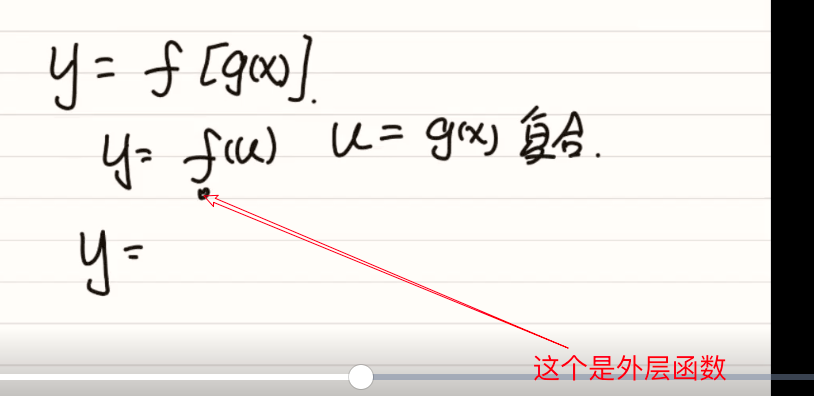 y = f [g(x)].
y = f(u) u = g(x) 复合.
y =
这个是外层函数